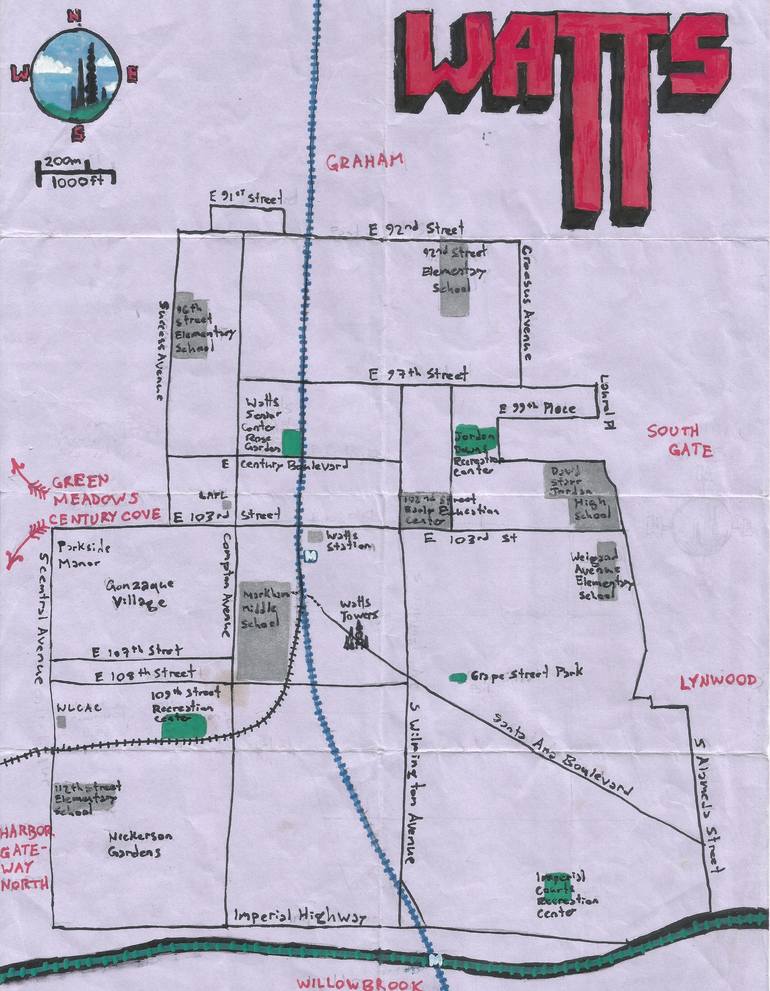 N
W
E
S
WATTS
200m
1000ft
GRAHAM
E 91ST Street
E 92nd Street
92nd Street
Elementary
School
Croesus Avenue
96th
Street
Elementary
School
Success Avenue
E 97th Street
Laurel Pl
E 99th Place
Watts
Senior
Center
Rose
Garden
Jordan
Downs
Recreation
Center
SOUTH
GATE
E Century Boulevard
David
Starr
Jordan
High
School
GREEN
MEADOWS
CENTURY COVE
LAPL
102nd Street
Early Education
Center
E 103rd Street
E 103rd St
Parkside
Manor
Gonzaque
Village
Compton Avenue
S Central Avenue
Watts
Station
M
Weigand
Avenue
Elementary
School
Markham
Middle
School
Watts
Towers
E 107th Stret
E 108th Street
Grape Street Park
LYNWOOD
WLCAC
109th Street
Recreation
Center
S Wilmington Avenue
Santa Ana Boulevard
S Alameda Street
112th Street
Elementary
School
HARBOR
GATE-
WAY
NORTH
Nickerson
Gardens
Imperial
Courts
Recreation
Center
Imperial Highway
M
WILLOWBROOK